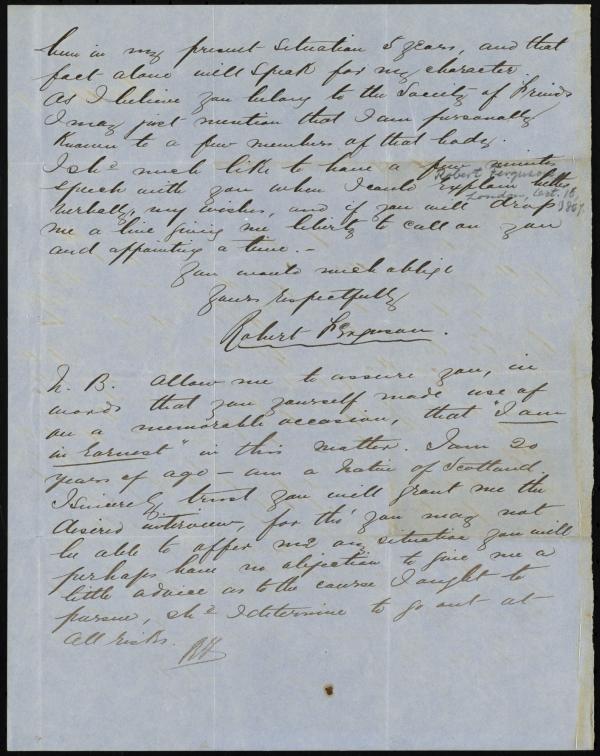 been in my present situation 5 years, and that
fact alone will speak for my character
As I believe you belong to the Society of Friends
I may just mention that I am personally
known to a few members of that body.
I shd much like to have a few minutes
speech with you when I could explain better
verbally, my wishes, and if you will drop
me a line giving me liberty to call on you
and appointing a time. –
Robert Ferguson
London, Oct. 16
1867
You would much oblige
Yours respectfully
Robert Ferguson.
N. B. Allow me to assure you, in
words that you yourself made use of
on a memorable occasion, that "I am
in Earnest" in this matter. I am 20
years of age – am a native of Scotland.
I sincerely trust you will grant me the
desired interview, for tho' you may not
be able to offer me any situation you will
perhaps have no objection to give me a
little advice as to the course I ought to
pursue, shd I determine to go out at
all risks.
RF